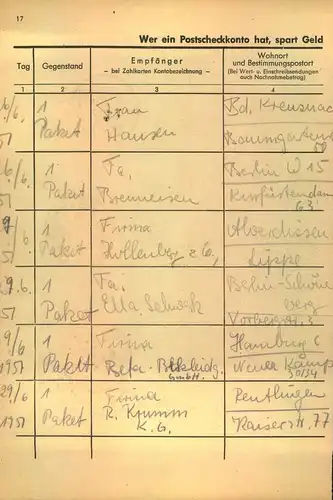 17
Wer ein Postscheckkonto hat, spart Geld
Tag
Gegenstand
Empfänger
– bei Zahlkarten Kontobezeichnung –
Wohnort
und Bestimmungspostort
(Bei Wert- u. Einschreibsendungen
auch Nachnahmebetrag)
1 2 3 4
6/6 1 Frau Bd. Kreuznach
51 Paket Hansen
6/6. 1 Fa. Berlin W 15
51 Paket Brenneisen Kurfürstendam
63.
1 Firma
/6. Paket Hollenberg & Co, Lippe
9.6. 1 Fa. Berlin-Schöne
51 Paket Ella berg
9/6 1 Firma Hamburg 6
1951 Paket Beta- Bekleidg. Neuer Kamp
GmbH. 30/34
29/6 1 Firma Reutlingen
1951 Paket R. Krumm Kaiserstr. 77
K.G.